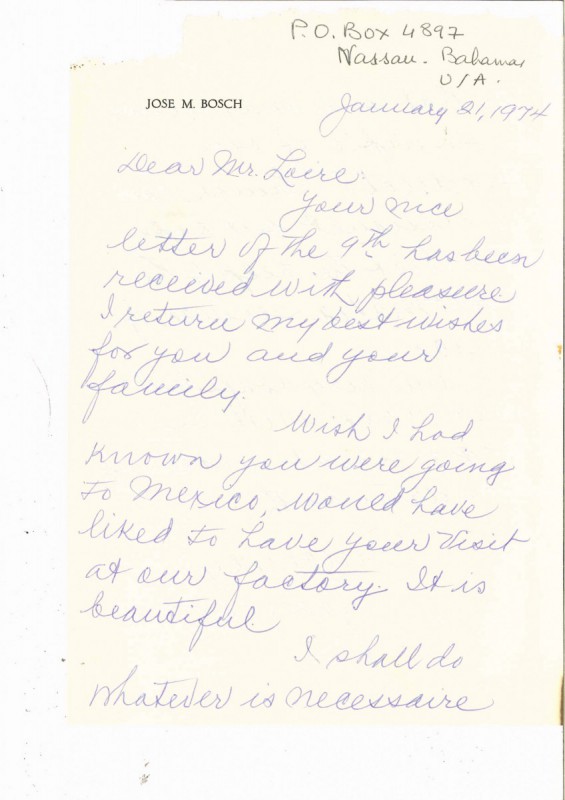 P.O. Box 4897
Nassau. Bahamas
JOSE M. BOSCH
January 21, 1974
Dear Mr. Loire:
Your nice
letter of the 9th has been
received with pleasure.
I return my best wishes
for you and your
family.
Wish I had
known you were going
to Mexico, would have
liked to have your visit
at our factory. It is
beautiful.
I shall do
whatever is necessaire